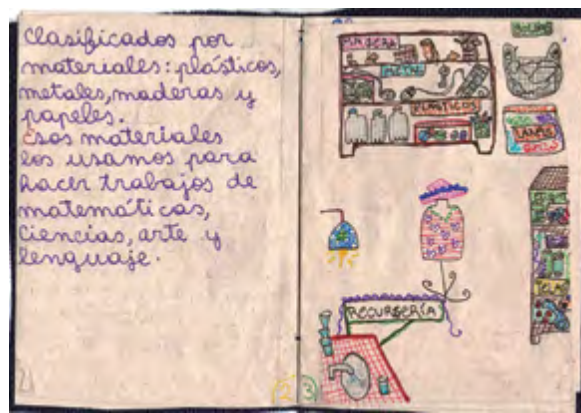 Clasificados por
materiales: plásticos,
metales, maderas y
papeles.
Esos materiales
los usamos para
hacer trabajos de
matemáticas,
Ciencias, arte y
lenguaje.
MADERA
METAL
PLASTICOS
BOLSAS
LANAS
TELAS
RECURSERÍA
2
3